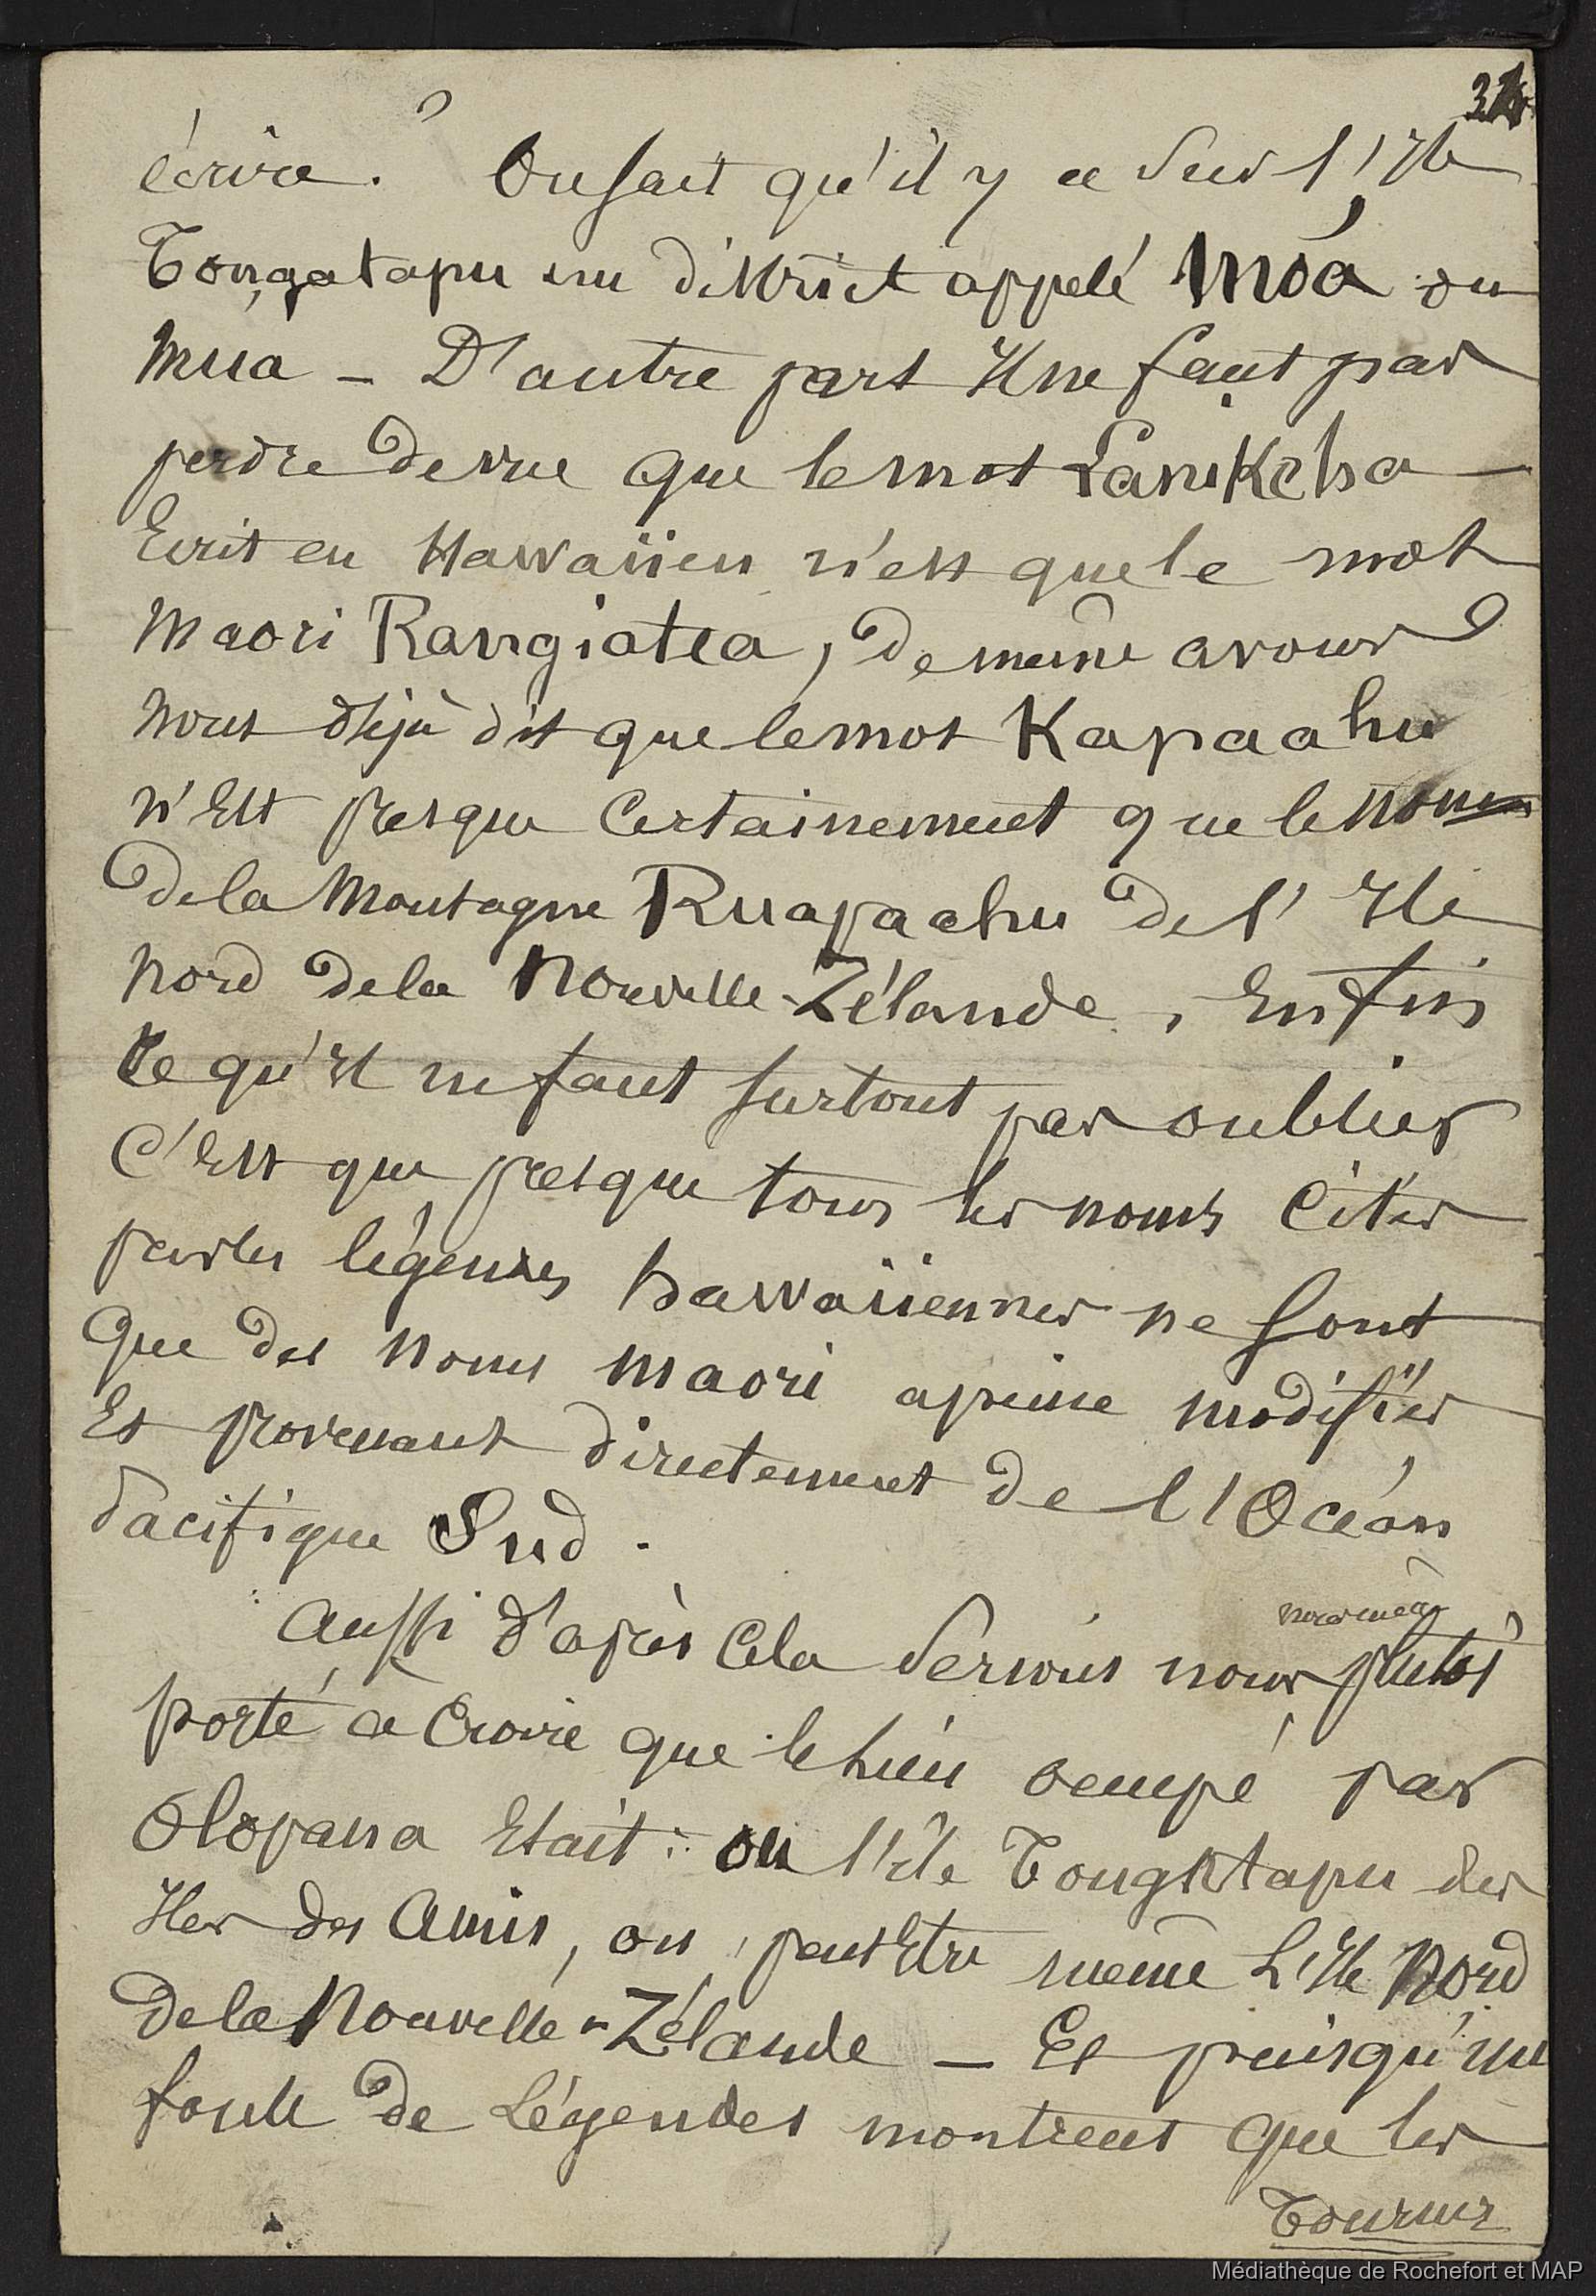 écrire." On sait qu'il y a sur l'Ile
Tongatapu un district appelé Moá ou
Mua _ D'autre part Il ne faut pas
perdre de vue que le mot Lanikeha
Ecrit en Hawaïien n'est que le mot
Maori Rangiatea, de même avons
nous déjà dit que le mot Kapaahu
n'Est presque Certainement que le nom
de la Montagne Ruapaahu de l'Ile
Nord de la Nouvelle-Zélande, Enfin
Ce qu'Il ne faut surtout pas oublier
C'Est que presque tous les noms Cités
par les légendes hawaïiennes ne sont
que des noms Maori a peine modifiés
Et provenant directement de l'Océan
Pacifique Sud.
nous même
Aussi d'après Cela serions nous plutôt
porté a Croire que le lieu occupé par
Olopana Etait: ou l'île Tongatapu des
Iles des Amis, ou peut Etre même L'Ile Nord
de la Nouvelle-Zélande _ Et puisqu'une
foule de Légendes montrent que les
Tournez
Médiathèque de Rochefort et MAP